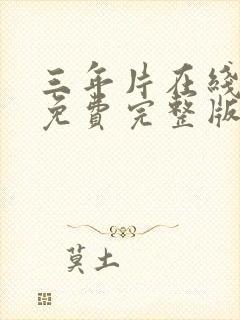 三年片在线
免费完整版
莫土